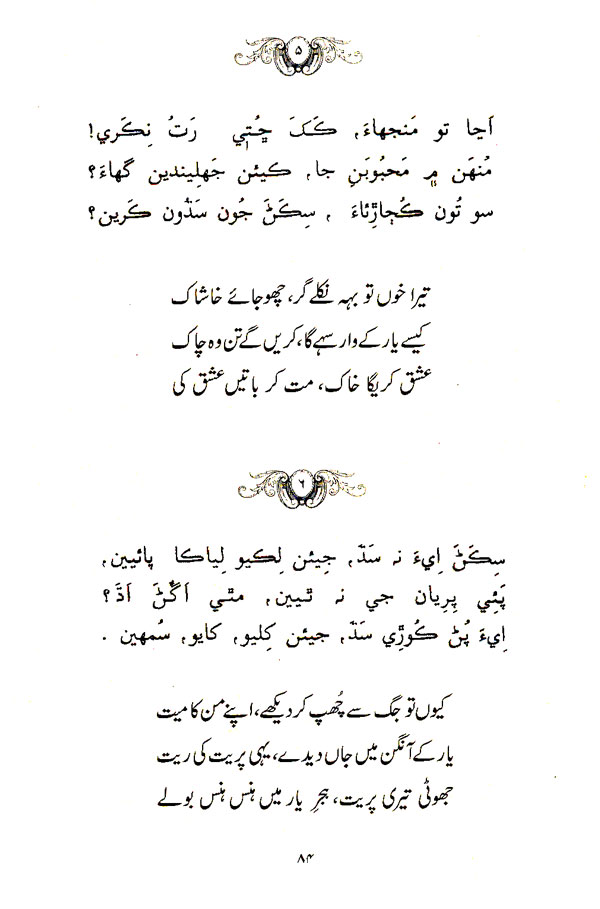 ۵
اَڃا تو مَنجهاءَ، ڪَکَ ڇُتي رَتُ نِڪَري!
مُنهَن ۾ مَحبُوبَنِ جا، ڪيئن جَهلِيندين گهاءَ؟
سو تُون ڪُڄاڙِئاءَ ، سِڪَڻَ جُون سَڌُون ڪَرين؟
تیرا خوں تو بہہ نکلے گر، چھو جائے خاشاک
کیسے یار کے وار سہے گا، کریں گے تن وہ چاک
عشق کریگا خاک، مت کر باتیں عشق کی
۶
سِڪَڻَ اِيءَ نہ سَڌَ، جيئن لِڪيو لِياڪا پائيين،
پَئِي پِرِيان جي نہ ٿيين، مٿي اَڱَڻَ اَڌَ؟
اِيءَ پُڻ ڪُوڙِي سَڌَ، جيئن کِليو، کايو، سُمهين .
کیوں تو جگ سے چُھپ کر دیکھے، اپنے من کا میت
یار کے آنگن میں جاں دیدے، یہی پریت کی ریت
جھوٹی تیری پریت، ہجرِ یار میں ہنس ہنس بولے
۸۴